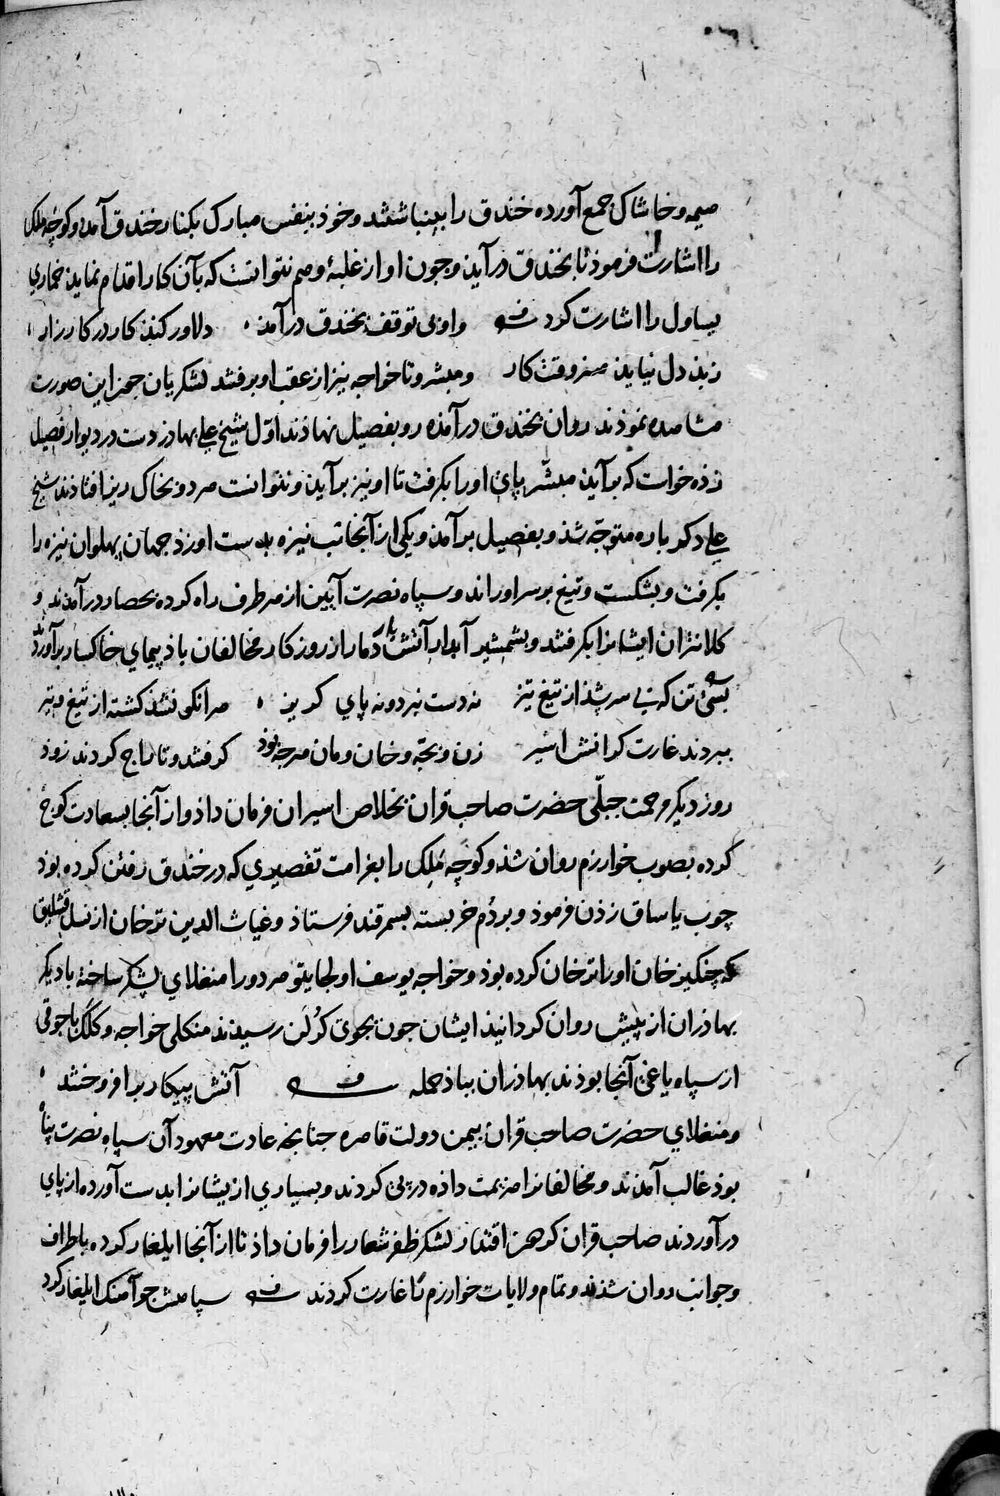 هیمه و خاشاک جمع آورده خندق را بینباشتند و خوذ بنفس مبارک بکنار خندق آمد و کوچه ملک
را اشارت فرموذ تا بخندق درآید و چون او از غلبهٔ وهم نتوانست که بآن کار اقدام نماید خماری
یساول را اشارت کرد و او بی توقف بخندق درآمد دلاور کند کار در کارزار
ز بد دل نیاید هنر وقت کار و مبشر و تاخواجه نیز از عقب او برفتند لشکریان چون این صورت
مشاهده نموذند روان بخندق درآمده رو بفصیل نهاذند اول شیخ علی بهادر دست در دیوار فصیل
زذه خواست که برآید مبشّر پای او را بگرفت تا او نیز برآید و نتوانست هر دو بخاک ریز افتاذند شیخ
علی دگر باره متوجّه شذ و بفصیل برآمد و یکی از آنجانب نیزه بدست او زذ جهان پهلوان نیزه را
بگرفت و بشکست و تیغ بر سر او راند و سپاه نصرت آیین از هر طرف راه کرده بحصار درآمدند و
کلانتران ایشانرا بگرفتند و بشمشیر آبدار آتش بار دمار از روزکار مخالفان باذ پیمای خاکسار برآوردند
بسی تن که بی سر شذ از تیغ تیز نه دست نبرد و نه پای گریز هر آنکو نشذ کشته از تیغ و تیر
ببردند غارت کرانش اسیر زن و بچه و خان و مان هرچه بوذ گرفتند و تاراج کردند زوذ
روز دیگر مرحمت جبلّی حضرت صاحب قران بخلاص اسیران فرمان داذ و از آنجا بسعادت کوچ
کرده بصوب خوارزم روان شذ و کوچه ملک را بغرامت تقصیری که در خندق رفتن کرده بوذ
چوب یاساق زذن فرموذ و بر دُم خر بسته بسمرقند فرستاذ و غیاث الدین ترخان از نسل قشلیق
که چنگیز خان او را ترخان کرده بوذ و خواجه یوسف اولجایتو هر دو را منغلای لشکر ساخته با دیگر
بهاذران از پیش روان گردانیذ ایشان چون بجوی کُرلن رسیذند منکلی خواجه و
از سپاه یاغی آنجا بوذند بهاذران بباذ حمله آتش پیکار برافروختند
و منغلای حضرت صاحب قران بیمن دولت قاهره چنانچه عادت معهود آن سپاه نصرت پناه
بوذ غالب آمدند و مخالفانرا هزیمت داده در پی کردند و بسیاری از یشانرا بدست آورده از پای
درآوردند صاحب قران گردون اقتدار لشکر ظفر شعار را فرمان داذ تا از آنجا ایلغار کرده باطراف
و جوانب روان شذند و تمام ولایات خوارزم تاغارت کردند سپاهش چو آهنگ ایلغار کرد